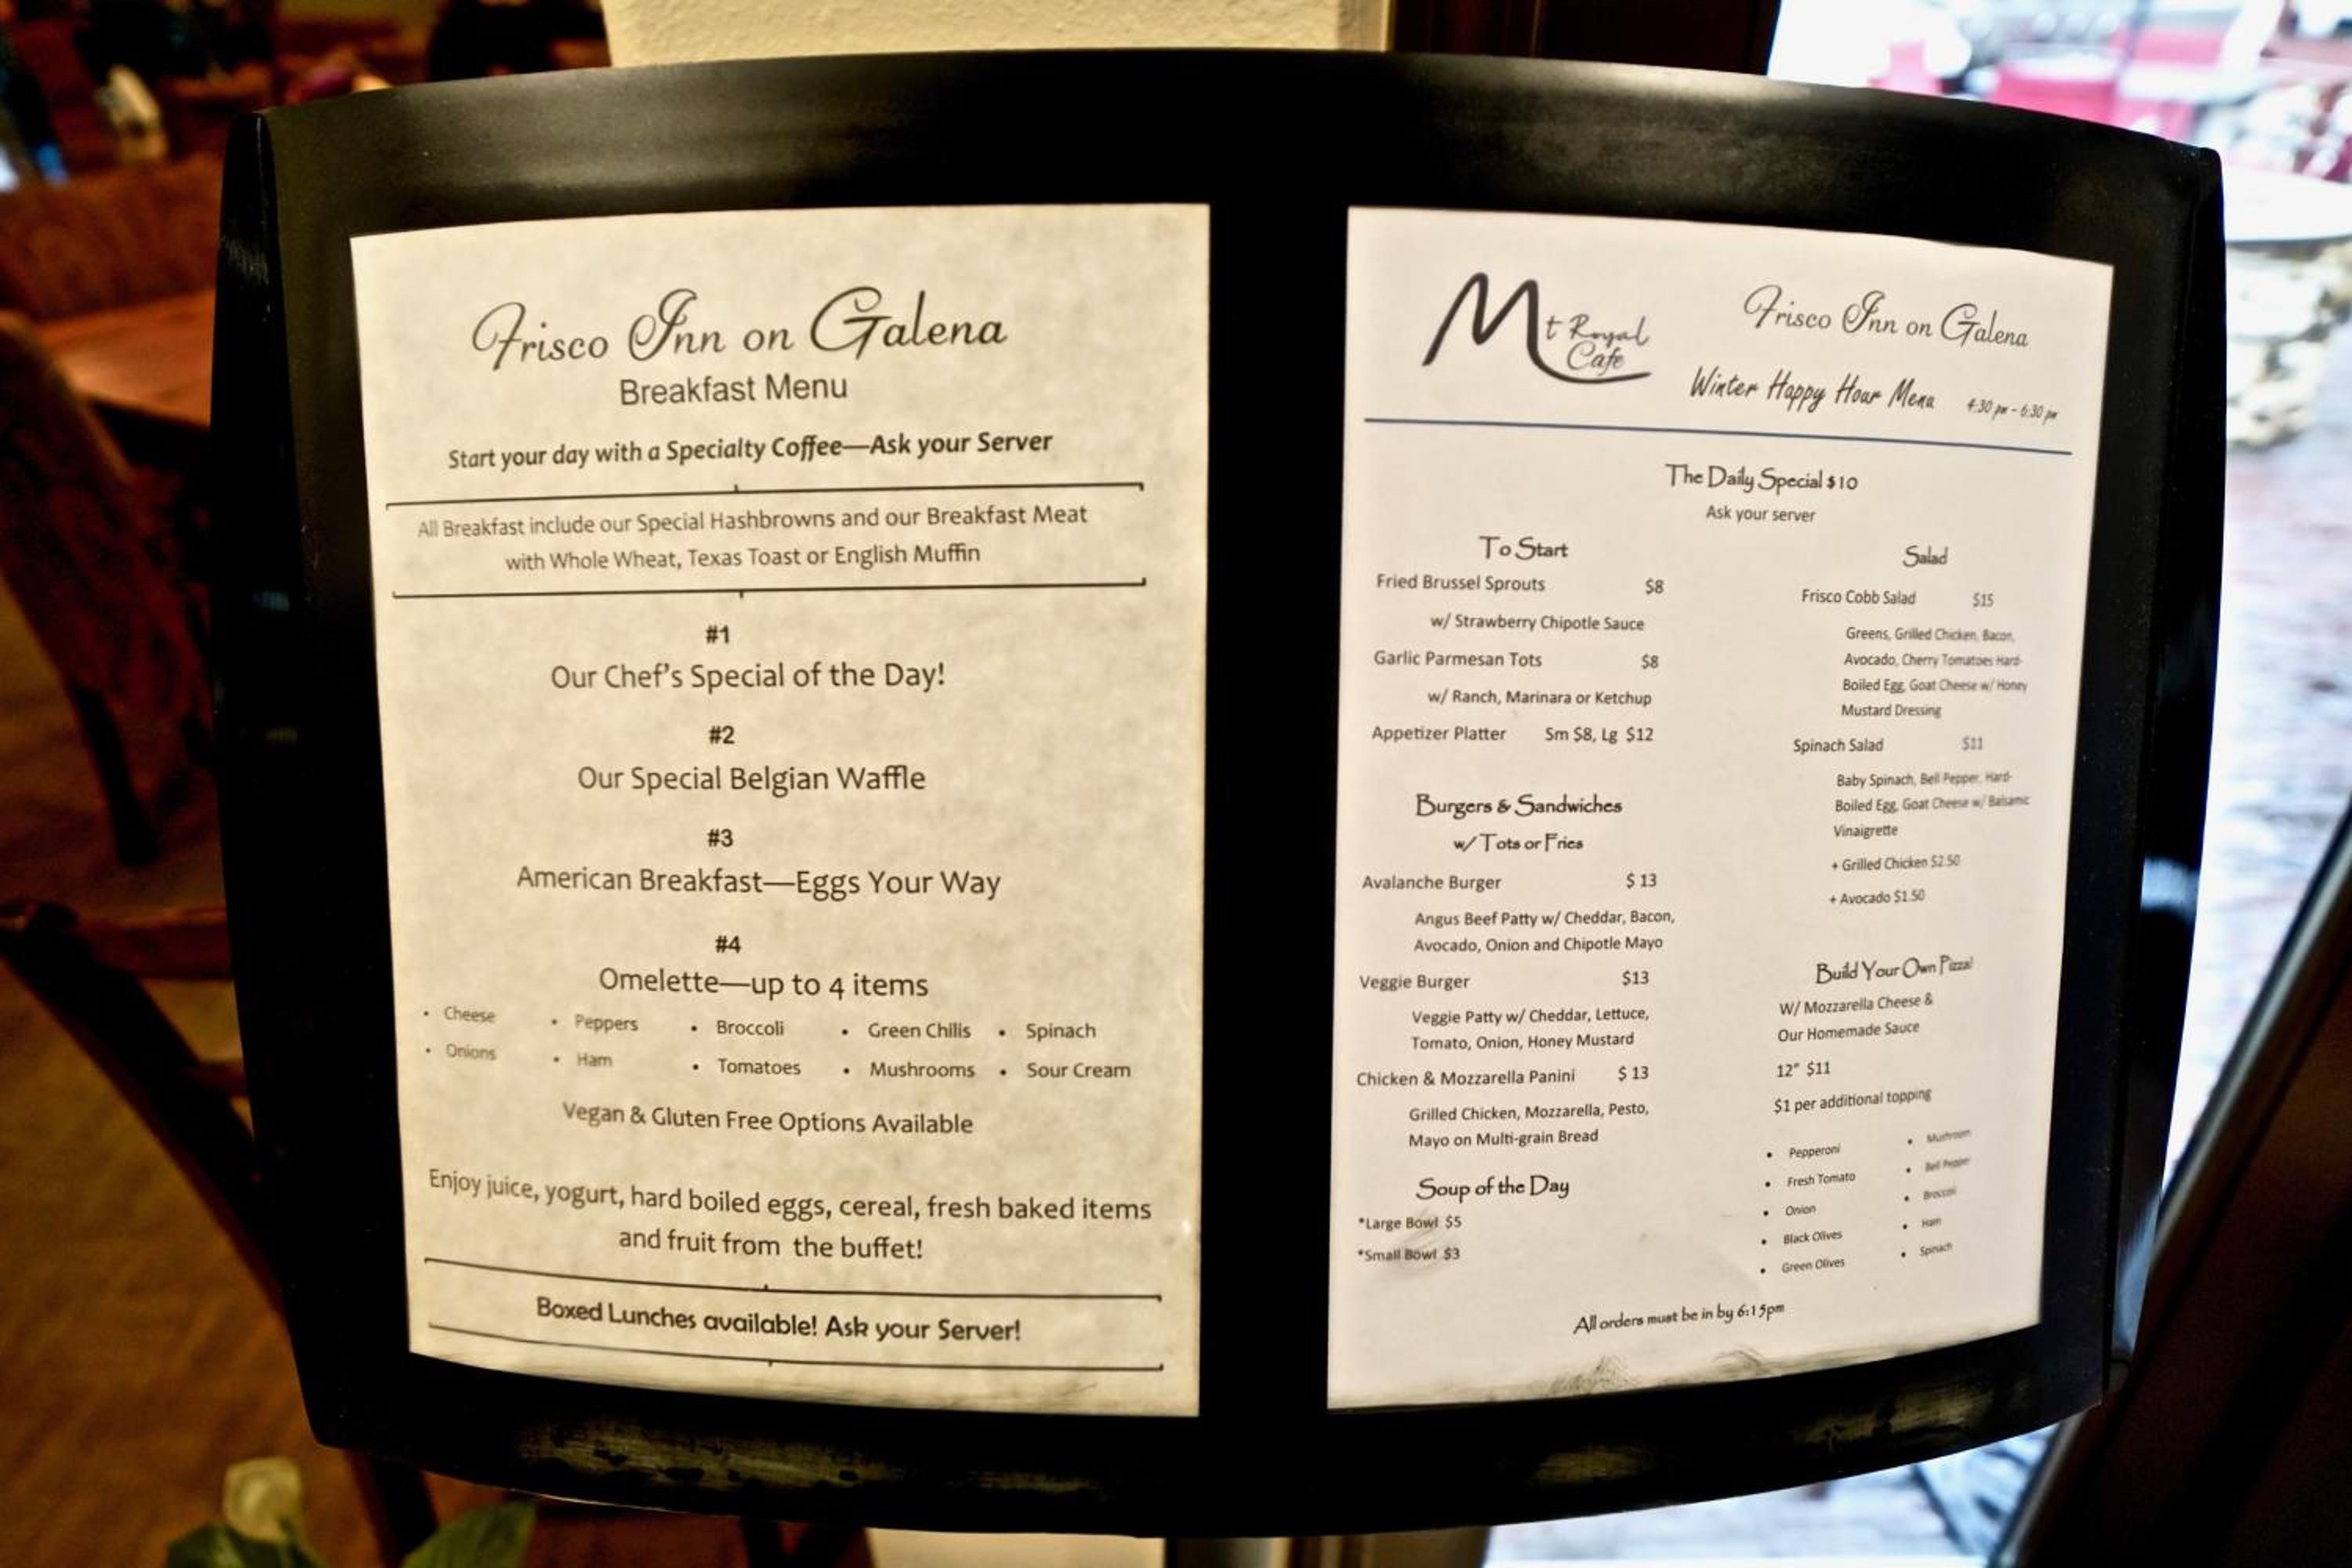 Frisco Inn on Galena
Breakfast Menu
Start your day with a Specialty Coffee—Ask your Server
All Breakfast include our Special Hashbrowns and our Breakfast Meat
with Whole Wheat, Texas Toast or English Muffin
#1
Our Chef's Special of the Day!
#2
Our Special Belgian Waffle
#3
American Breakfast—Eggs Your Way
#4
Omelette—up to 4 items
• Cheese • Peppers • Broccoli • Green Chilis • Spinach
• Onions • Ham • Tomatoes • Mushrooms • Sour Cream
Vegan & Gluten Free Options Available
Enjoy juice, yogurt, hard boiled eggs, cereal, fresh baked items
and fruit from the buffet!
Boxed Lunches available! Ask your Server!
Mt Royal
Cafe
Frisco Inn on Galena
Winter Happy Hour Menu 4:30 pm - 6:30 pm
The Daily Special $10
Ask your server
To Start
Fried Brussel Sprouts $8
w/ Strawberry Chipotle Sauce
Garlic Parmesan Tots $8
w/ Ranch, Marinara or Ketchup
Appetizer Platter Sm $8, Lg $12
Burgers & Sandwiches
w/ Tots or Fries
Avalanche Burger $ 13
Angus Beef Patty w/ Cheddar, Bacon,
Avocado, Onion and Chipotle Mayo
Veggie Burger $13
Veggie Patty w/ Cheddar, Lettuce,
Tomato, Onion, Honey Mustard
Chicken & Mozzarella Panini $ 13
Grilled Chicken, Mozzarella, Pesto,
Mayo on Multi-grain Bread
Soup of the Day
*Large Bowl $5
*Small Bowl $3
Salad
Frisco Cobb Salad $15
Greens, Grilled Chicken, Bacon,
Avocado, Cherry Tomatoes Hard-
Boiled Egg, Goat Cheese w/ Honey
Mustard Dressing
Spinach Salad $11
Baby Spinach, Bell Pepper, Hard-
Boiled Egg, Goat Cheese w/ Balsamic
Vinaigrette
+ Grilled Chicken $2.50
+ Avocado $1.50
Build Your Own Pizza!
W/ Mozzarella Cheese &
Our Homemade Sauce
12" $11
$1 per additional topping
• Pepperoni
• Fresh Tomato
• Onion
• Black Olives
• Green Olives
• Mushroom
• Bell Pepper
• Broccoli
• Ham
• Spinach
All orders must be in by 6:15pm